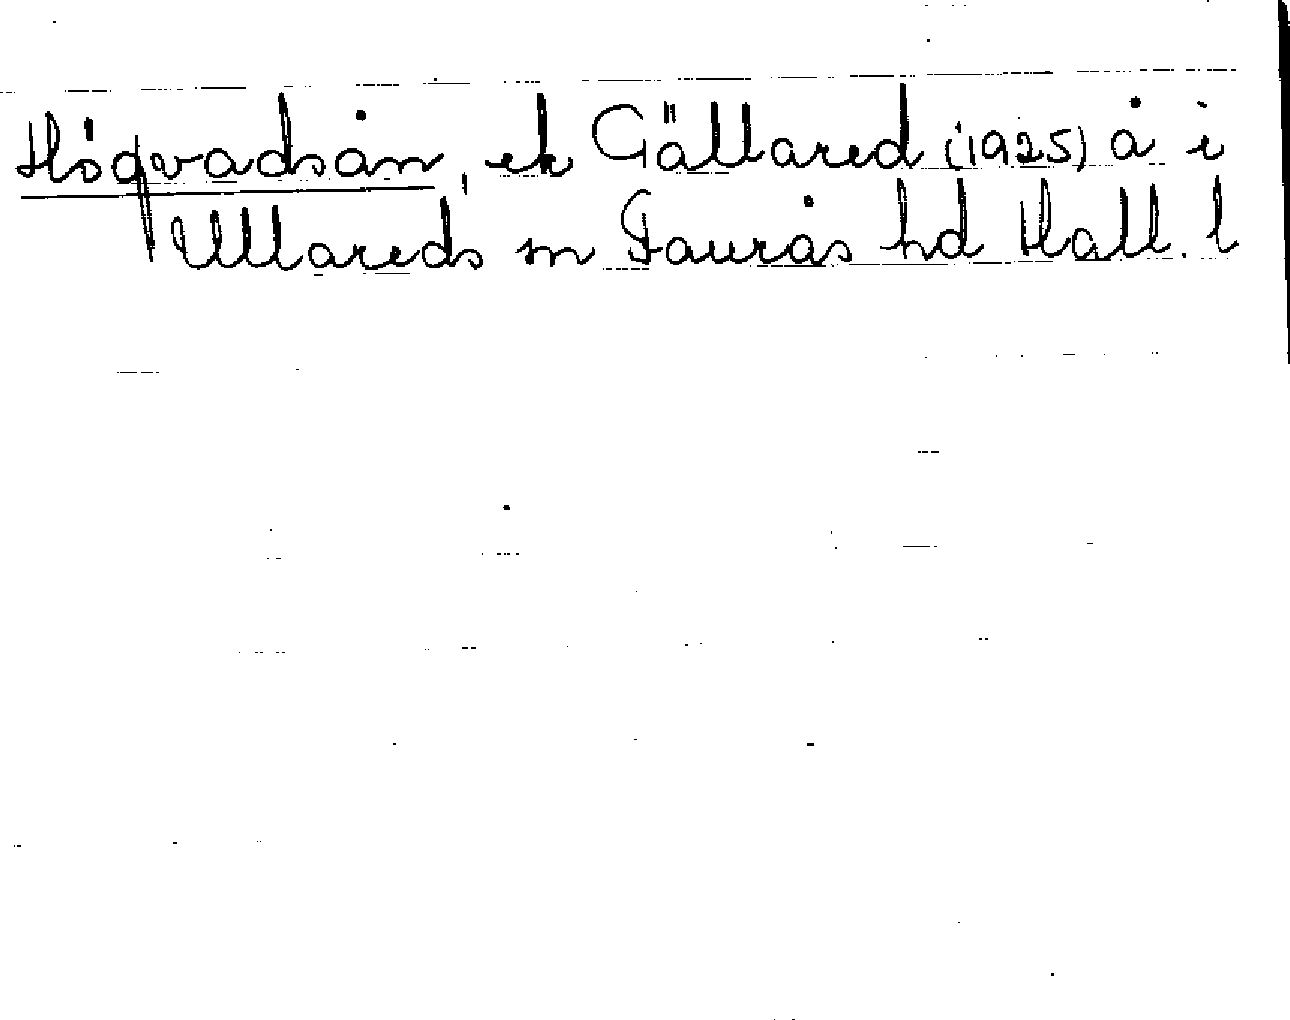 Högvadsån, ek Gällared (1925) å i
Ullareds sn Faurås hd Hall. l